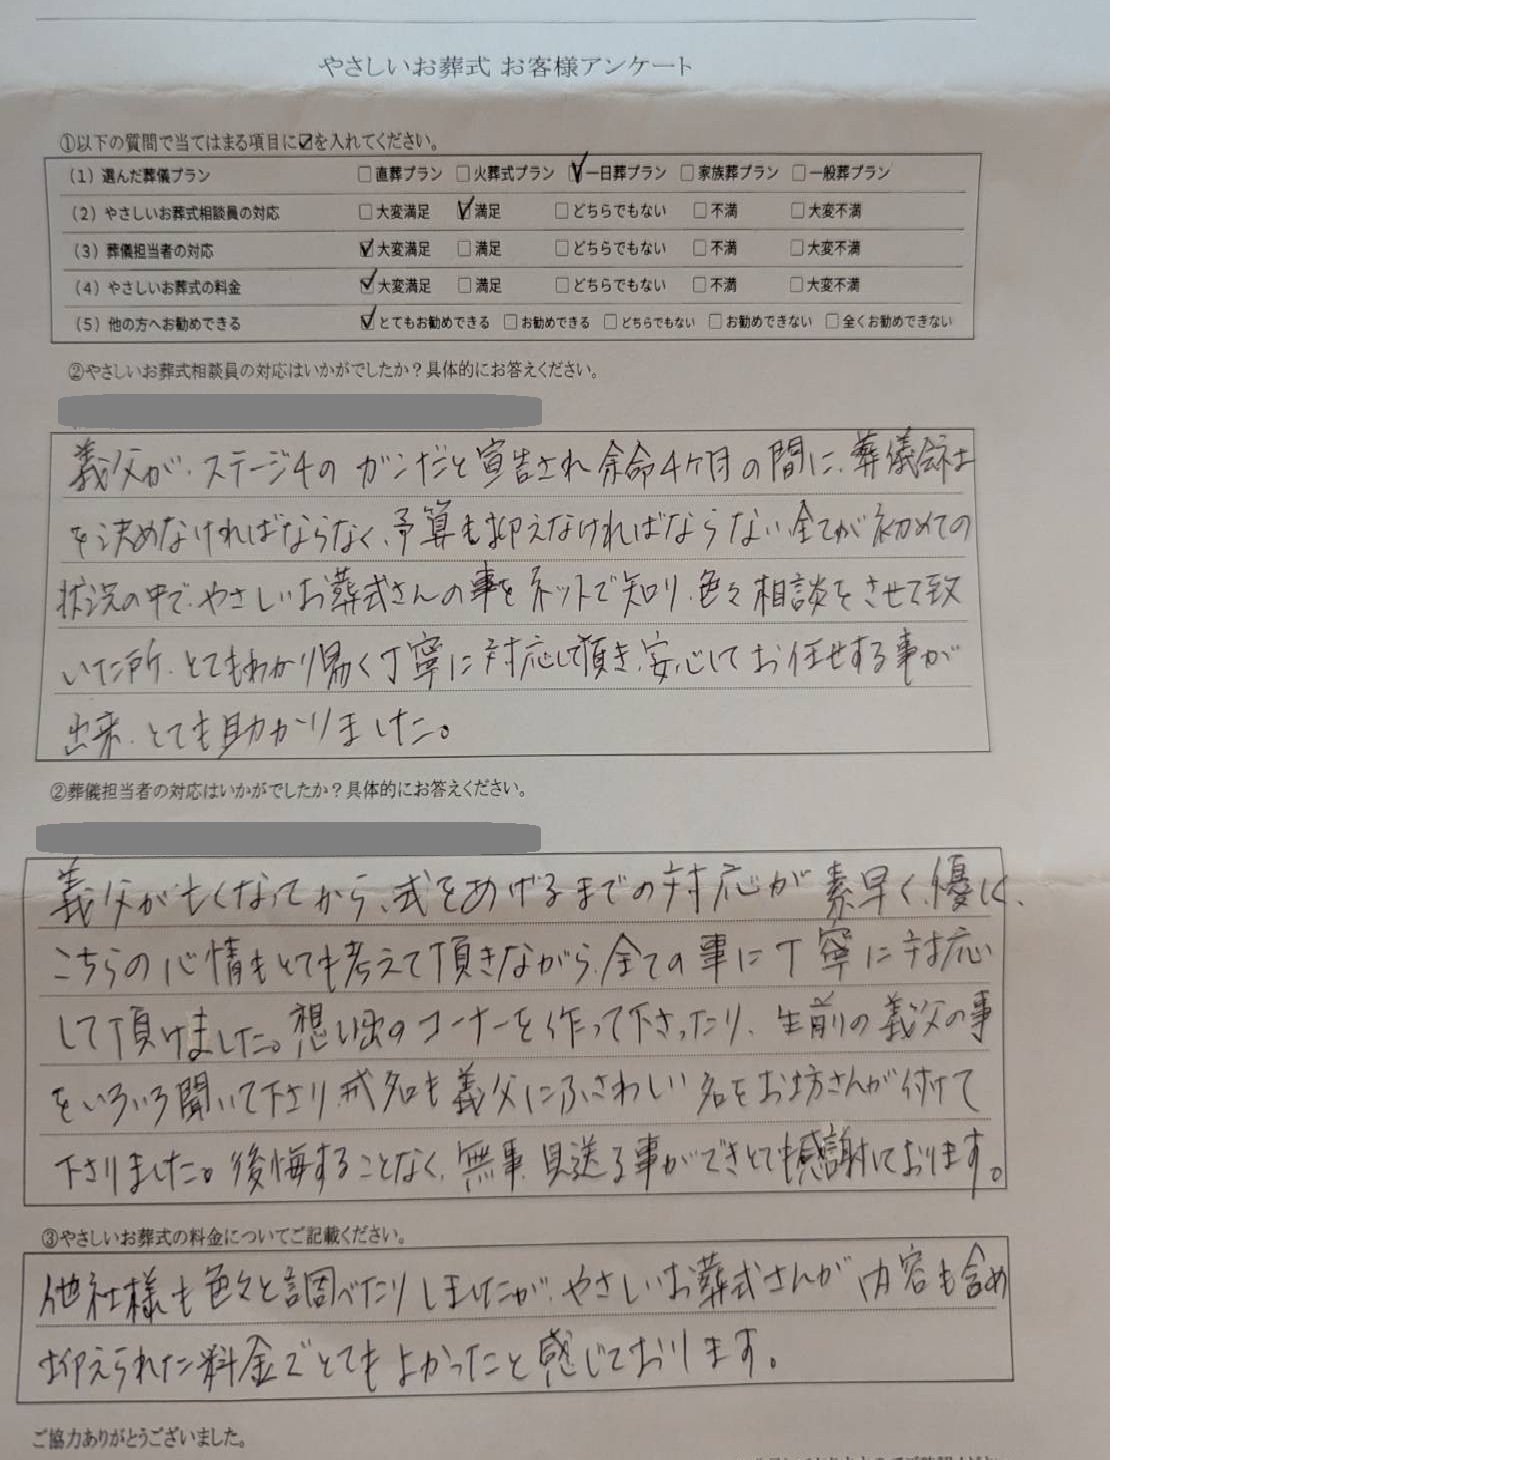 やさしいお葬式 お客様アンケート
①以下の質問で当てはまる項目に☑を入れてください。
(1) 選んだ葬儀プラン □直葬プラン □火葬式プラン ☑一日葬プラン □家族葬プラン □一般葬プラン
(2) やさしいお葬式相談員の対応 □大変満足 ☑満足 □どちらでもない □不満 □大変不満
(3) 葬儀担当者の対応 ☑大変満足 □満足 □どちらでもない □不満 □大変不満
(4) やさしいお葬式の料金 ☑大変満足 □満足 □どちらでもない □不満 □大変不満
(5) 他の方へお勧めできる ☑とてもお勧めできる □お勧めできる □どちらでもない □お勧めできない □全くお勧めできない
②やさしいお葬式相談員の対応はいかがでしたか?具体的にお答えください。
義父が、ステージ4の ガンだと宣告され余命4ケ月の間に、葬儀会社
を決めなければならなく、予算も抑えなければならない全てが初めての
状況の中で、やさしいお葬式さんの事をネットで知り、色々相談をさせて致
いた所、とてもわかり易く丁寧に対応して頂き、安心してお任せする事が
出来、とても助かりました。
②葬儀担当者の対応はいかがでしたか?具体的にお答えください。
義父が亡くなってから、式をあげるまでの対応が素早く、優しく、
こちらの心情もとても考えて頂きながら、全ての事に丁寧に対応
して頂けました。想い出のコーナーを作って下さったり、生前の義父の事
をいろいろ聞いて下さり、戒名も義父にふさわしい名をお坊さんが付けて
下さりました。後悔することなく、無事、見送る事ができとても感謝しております。
③やさしいお葬式の料金についてご記載ください。
他社様も色々と調べたりしましたが、やさしいお葬式さんが内容も含め
抑えられた料金でとてもよかったと感じております。
ご協力ありがとうございました。